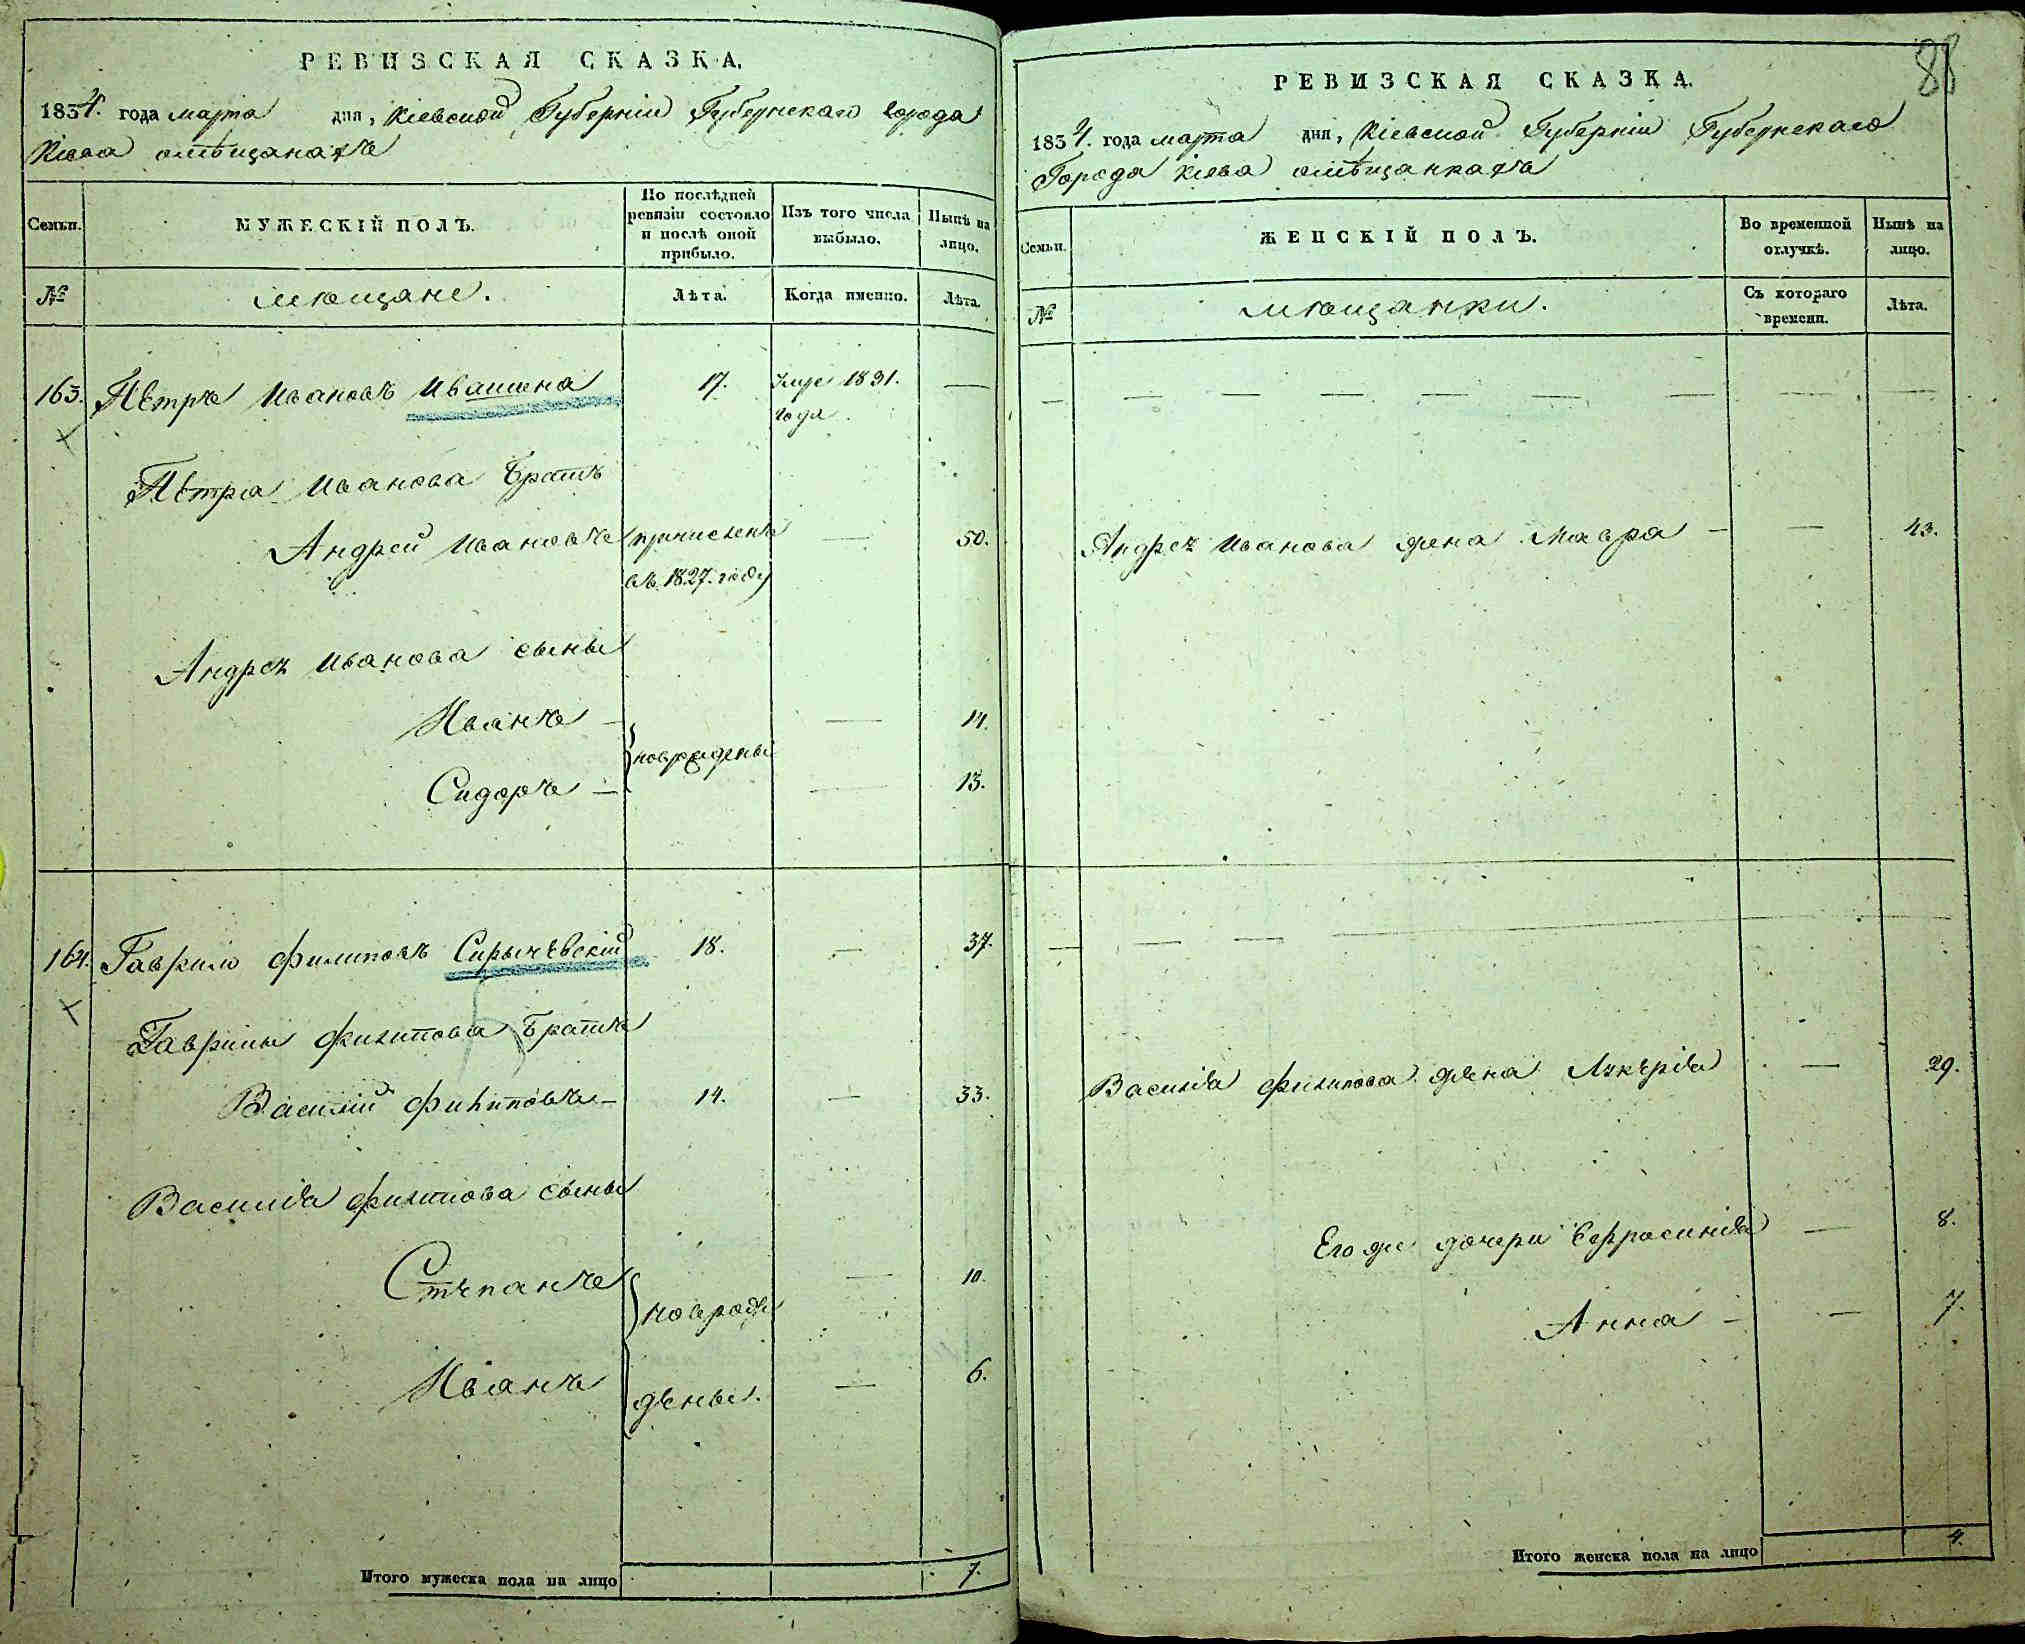 РЕВИЗСКАЯ СКАЗКА.
1834. года марта дня, Кіевской Губерніи Губернскаго города
Кіева омѣщанахъ
Семьи.
МУЖЕСКІЙ ПОЛЪ.
По послѣдней ревизіи состояло и послѣ оной прибыло.
Изъ того числа выбыло.
Нынѣ на лицо.
№
мѣщане.
Лѣта.
Когда именно.
Лѣта.
163. Пѣтръ Ивановъ Ивашена 17. Умре 1831. —
года
Пѣтра Иванова братъ
Андрей Ивановъ причисленъ — 50.
въ 1827. году
Андрея Иванова сыны
Иванъ — — 14.
новрождены
Сидоръ — — 13.
164. Гаврило Филиповъ Сирычѣвскій 18. — 37.
Гаврилы Филипова братъ
Василій Филиповъ — 14. — 33.
Василія Филипова сыны
Стѣпанъ — 10.
новрож
Иванъ — 6.
дѣны.
Итого мужеска пола на лицо 7.
88
РЕВИЗСКАЯ СКАЗКА.
1834. года марта дня, Кіевской Губерніи Губернскаго
Города Кіева омѣщанкахъ
Семьи.
ЖЕНСКІЙ ПОЛЪ.
Во временной отлучкѣ.
Нынѣ на лицо.
№
мѣщанки.
Съ котораго времени.
Лѣта.
— — — — — — — — — —
Андрея Иванова жена Мавра — — 43.
— — — —
Василія Филипова жена Лукѣрія — 29.
Его же дочери Ефросинія — 8.
Анна — — 7.
Итого женска пола на лицо 4.